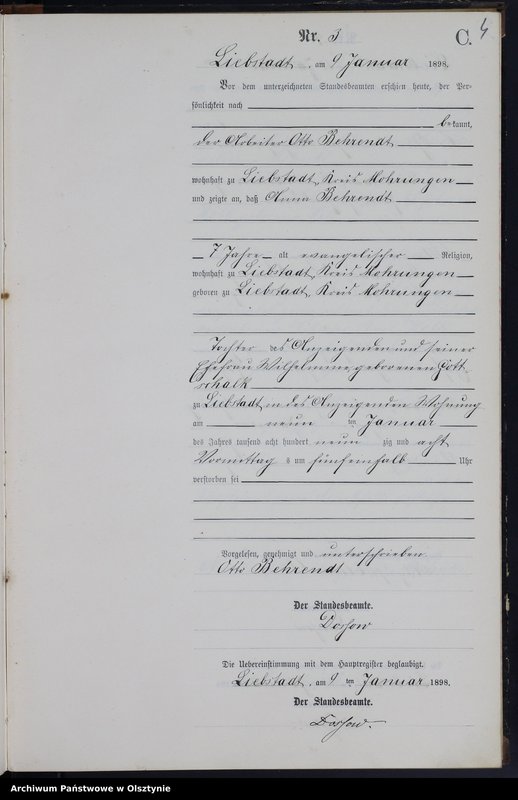 4
Nr. 3 C.
Liebstadt, am 9 Januar 1898.
Vor dem unterzeichneten Standesbeamten erschien heute, der Per-
sönlichkeit nach
bekannt,
der Arbeiter Otto Behrendt
wohnhaft zu Liebstadt, Kreis Mohrungen
und zeigte an, daß Anna Behrendt
7 Jahre alt evangelischer Religion,
wohnhaft zu Liebstadt, Kreis Mohrungen
geboren zu Liebstadt, Kreis Mohrungen
Tochter des Anzeigenden und seiner
Ehefrau Wilhelmine geborenen Gott
schalk
zu Liebstadt, in des Anzeigenden Wohnung
am neun ten Januar
des Jahres tausend acht hundert neun zig und acht
Vormittag s um fünfeinhalb Uhr
verstorben sei
Vorgelesen, genehmigt und unterschrieben
Otto Behrendt
Der Standesbeamte.
Die Uebereinstimmung mit dem Hauptregister beglaubigt.
Liebstadt, am 9 ten Januar 1898.
Der Standesbeamte.
Archiwum Państwowe w Olsztynie